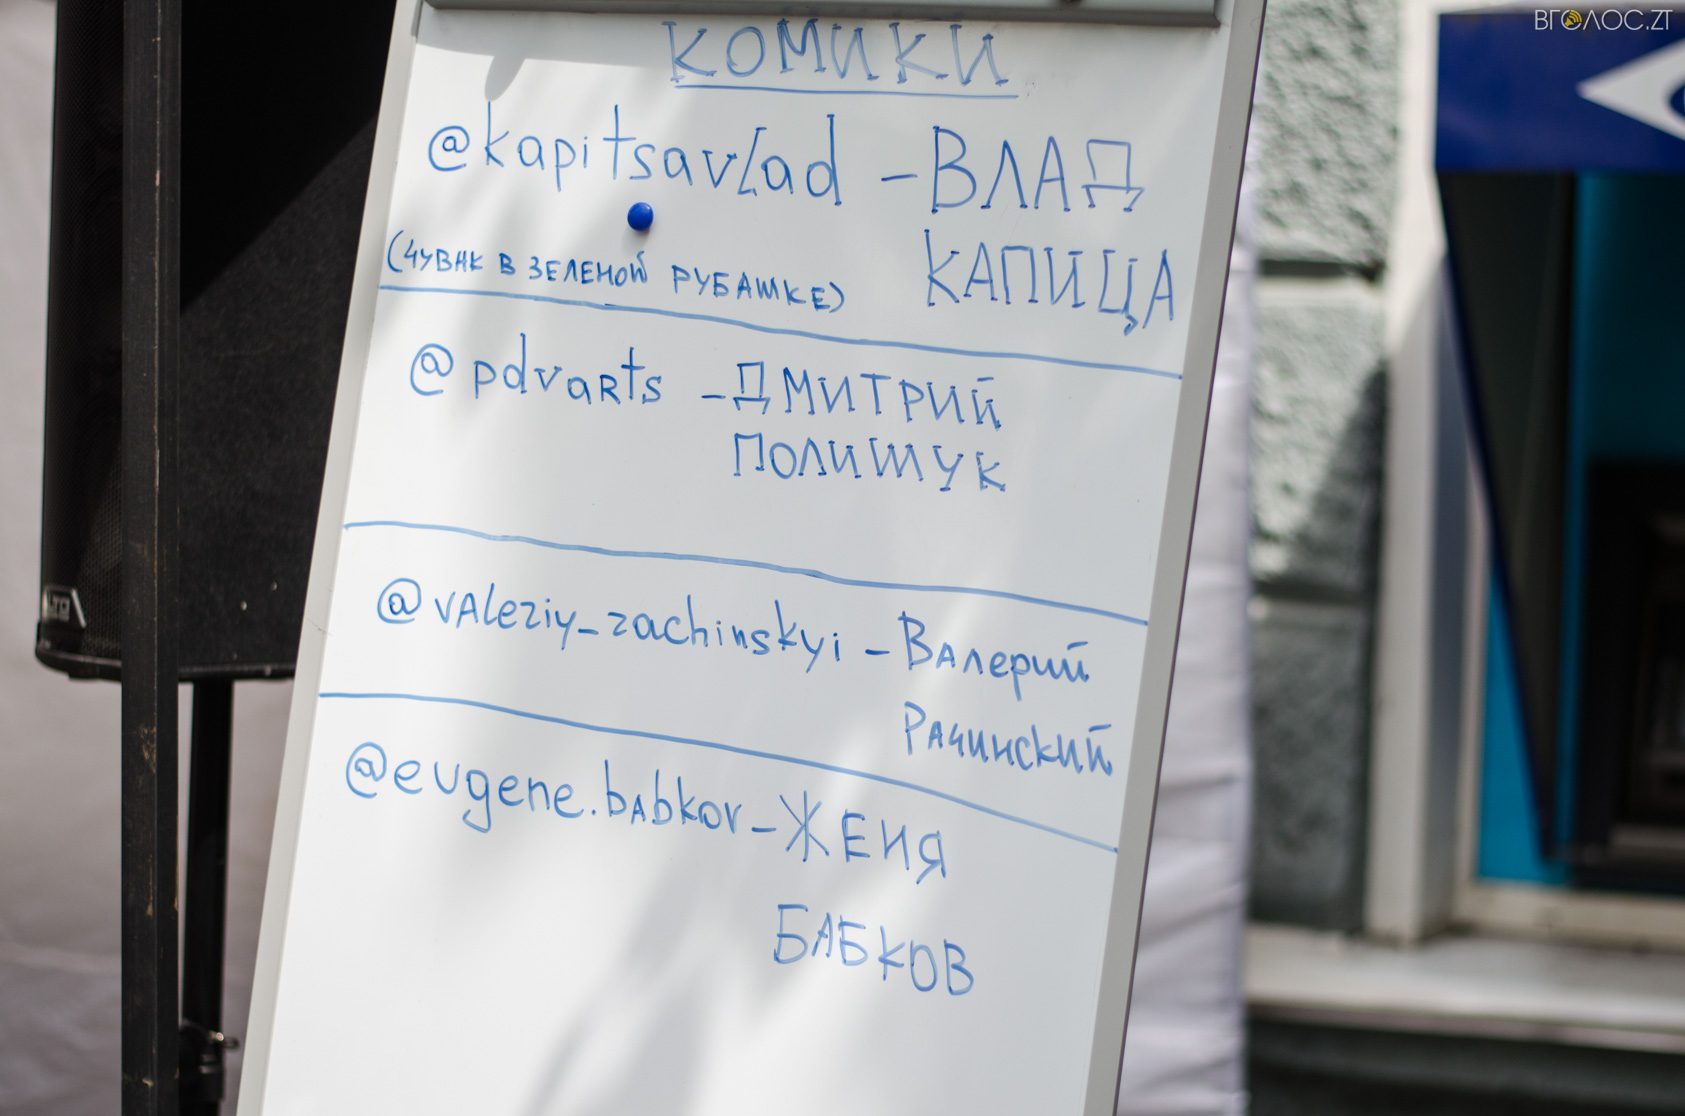 ВГОЛОС.ZT
КОМИКИ
@kapitsavlad - ВЛАД
КАПИЦА
(ЧУВАК В ЗЕЛЕНОЙ РУБАШКЕ)
@pdvarts - ДМИТРИЙ
ПОЛИЩУК
@valeriy_rachinskyi - Валерий
Рачинский
@evgene.babkov - ЖЕНЯ
БАБКОВ